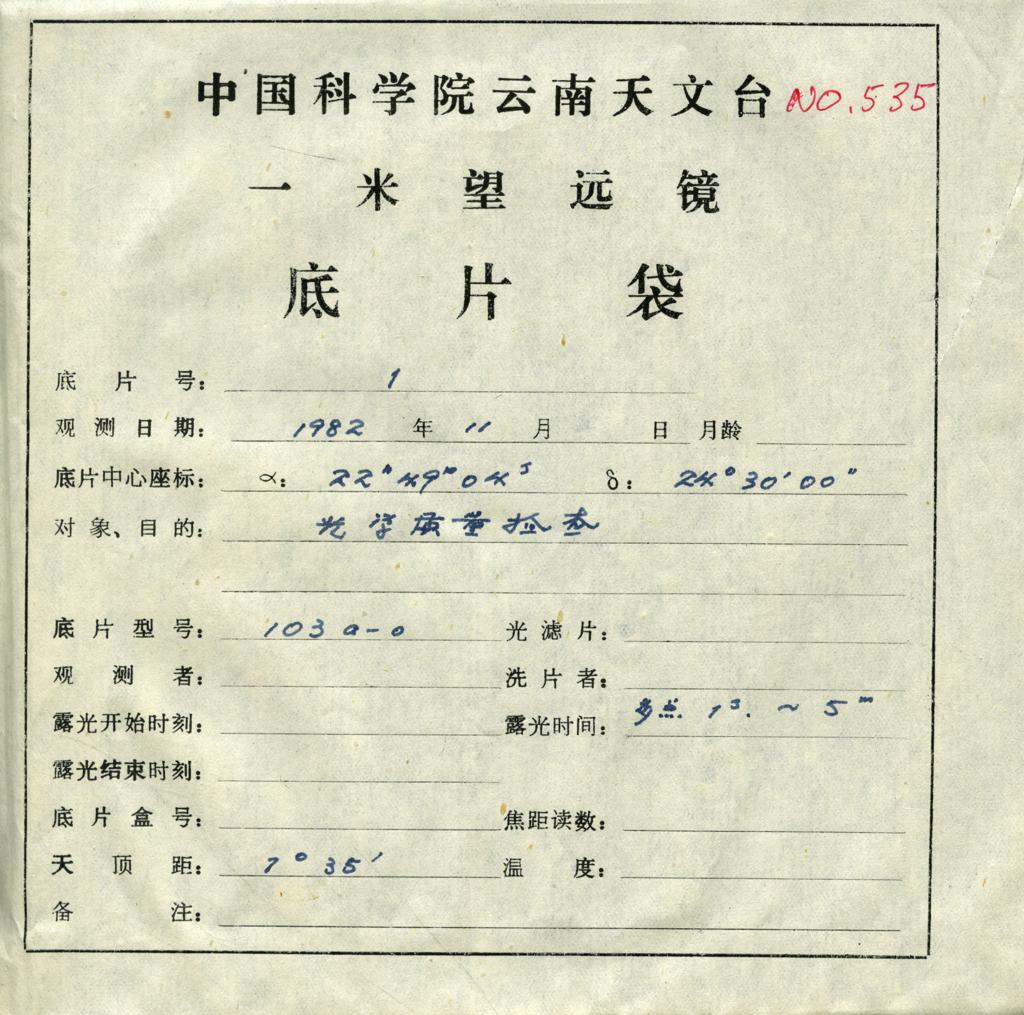 中国科学院云南天文台 NO.535
一米望远镜
底片袋
底片号： 1
观测日期： 1982 年 11 月 日 月龄
底片中心座标： α： 22ʰ49ᵐ04ˢ δ： 24°30′00″
对象、目的： 光学质量检查
底片型号： 103a-o 光滤片：
观测者： 洗片者：
露光开始时刻： 露光时间： 多点 1ˢ. ~ 5ᵐ
露光结束时刻：
底片盒号： 焦距读数：
天顶距： 1°35′ 温度：
备注：